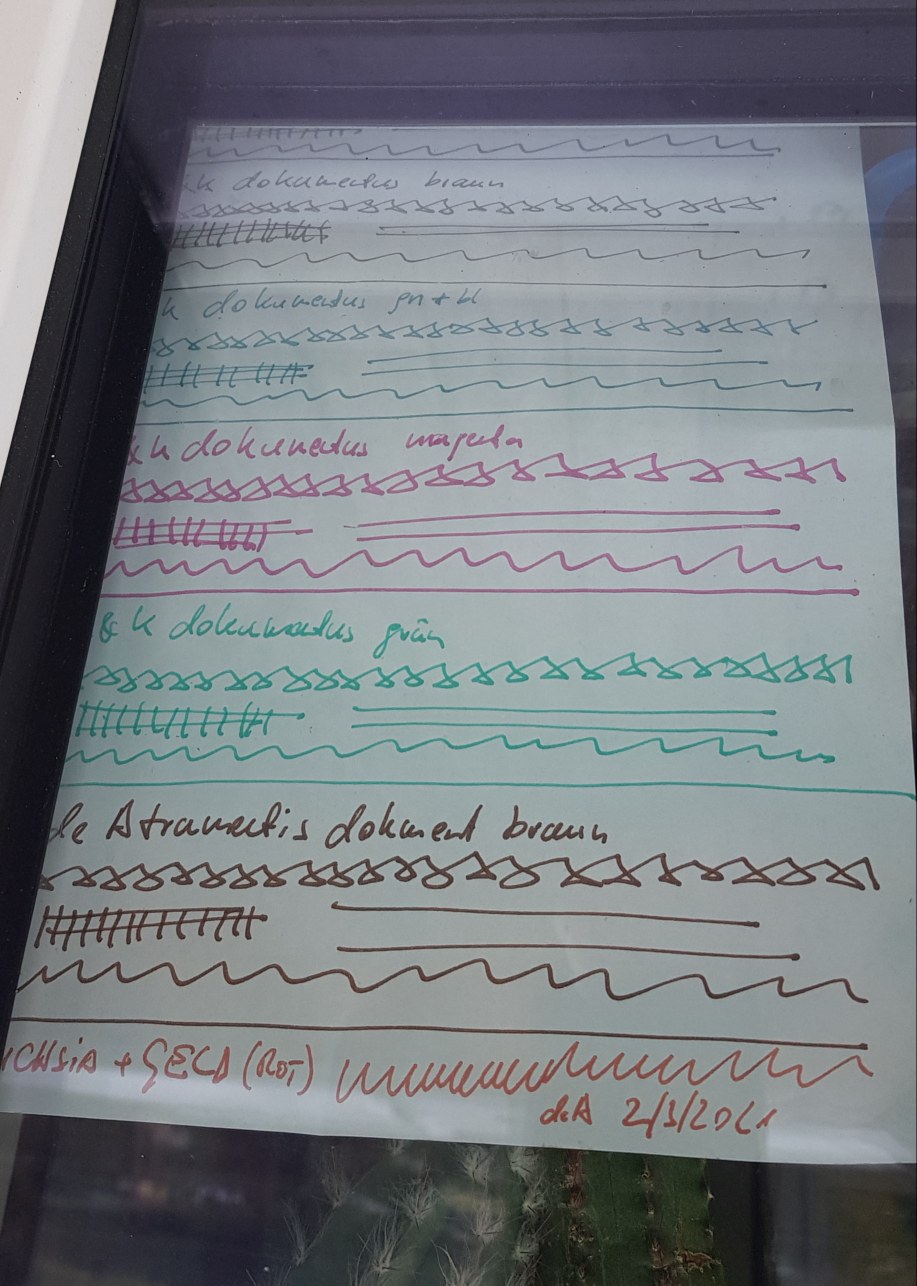 k dokumentus braun
k dokumentus
& k dokumentus magenta
& k dokumentus grün
de Atramentis dokument braun
CHSiA + GELB (ROT)
deA 2/3/2021